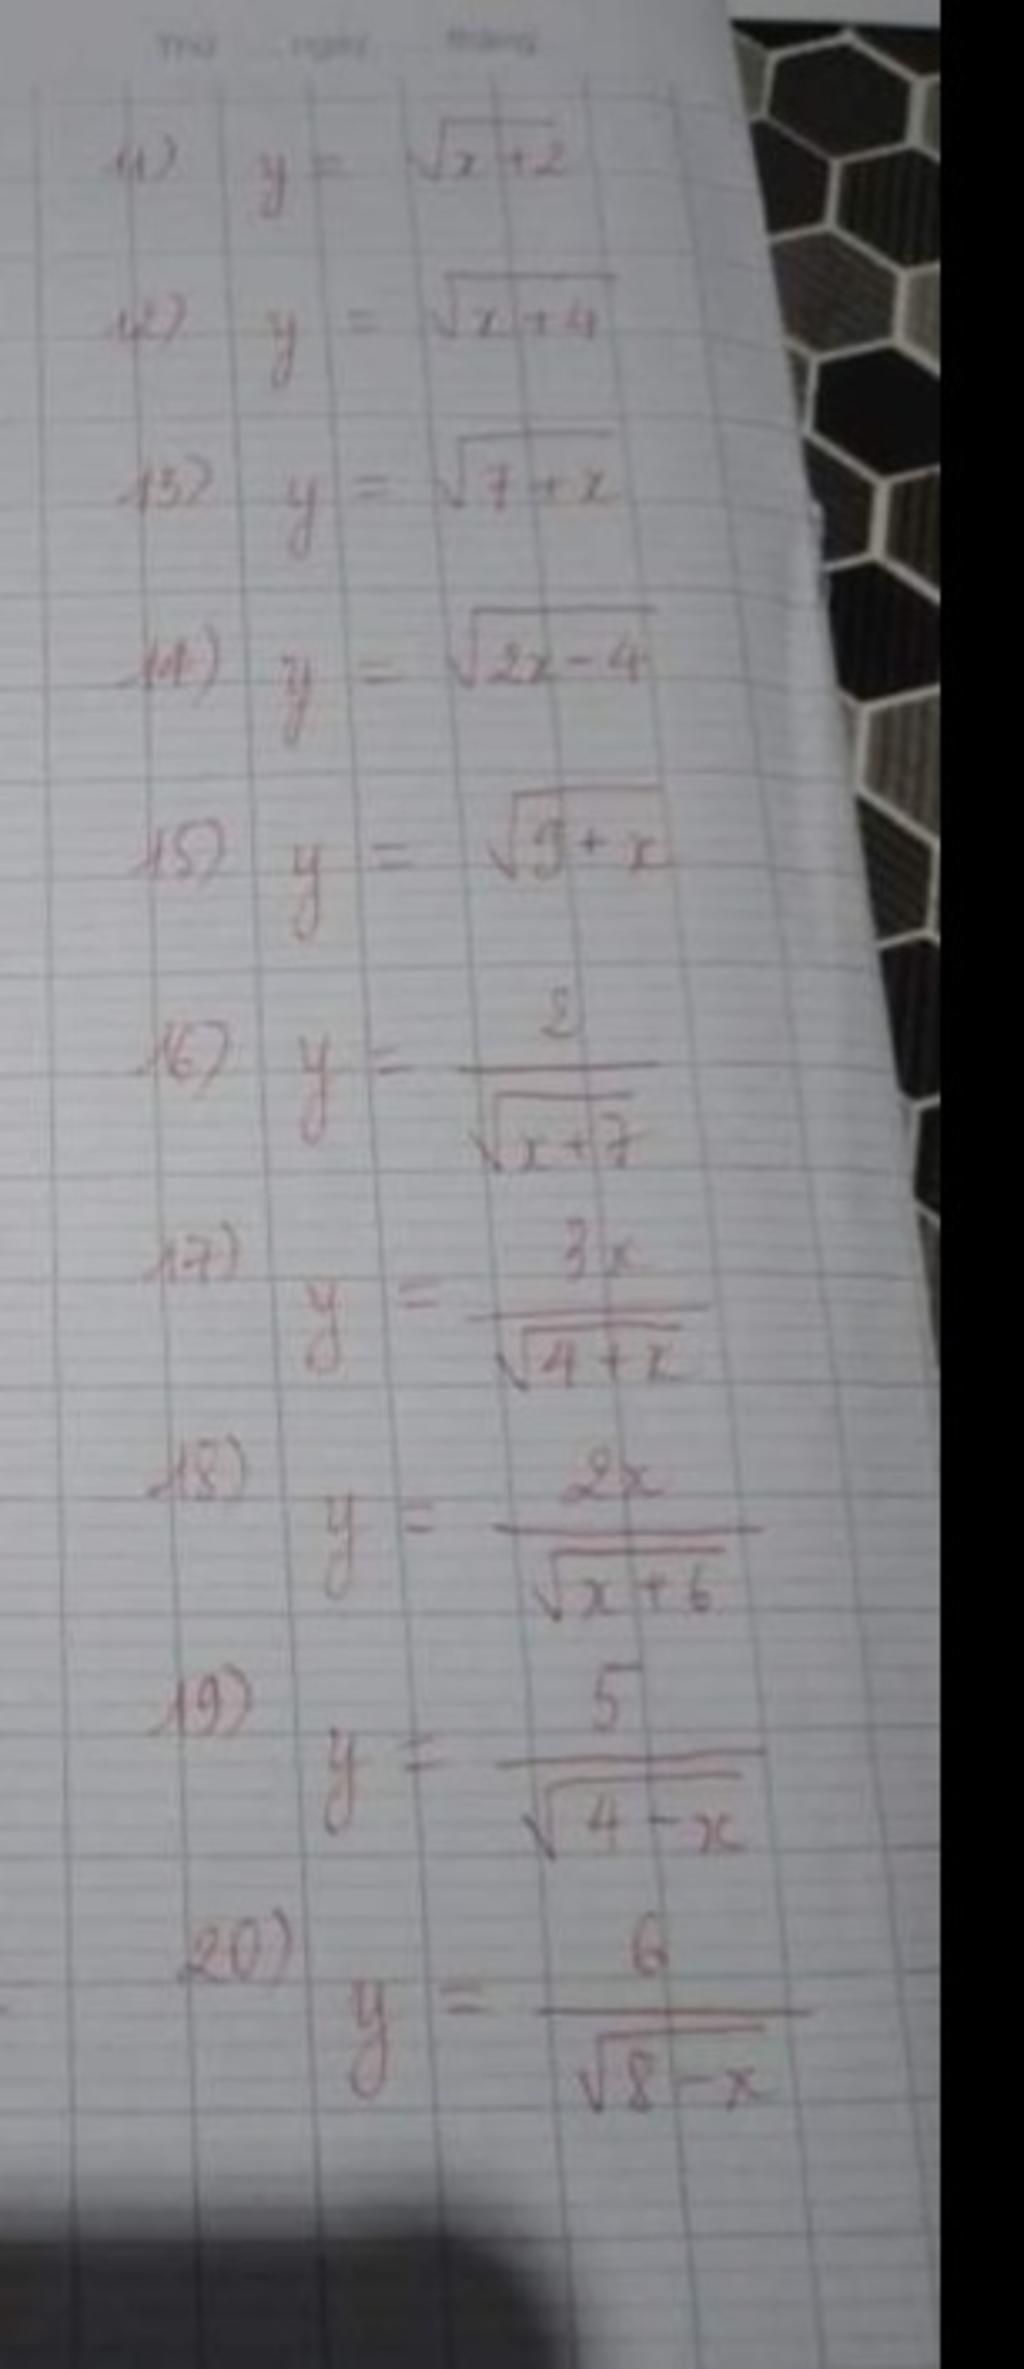 Thứ ngày tháng
11) y = √(x+2)
12) y = √(x+4)
13) y = √(7+x)
14) y = √(2x-4)
15) y = √(9+x)
16) y = 2/√(x+7)
17) y = 3x/√(4+x)
18) y = 2x/√(x+6)
19) y = 5/√(4-x)
20) y = 6/√(8-x)